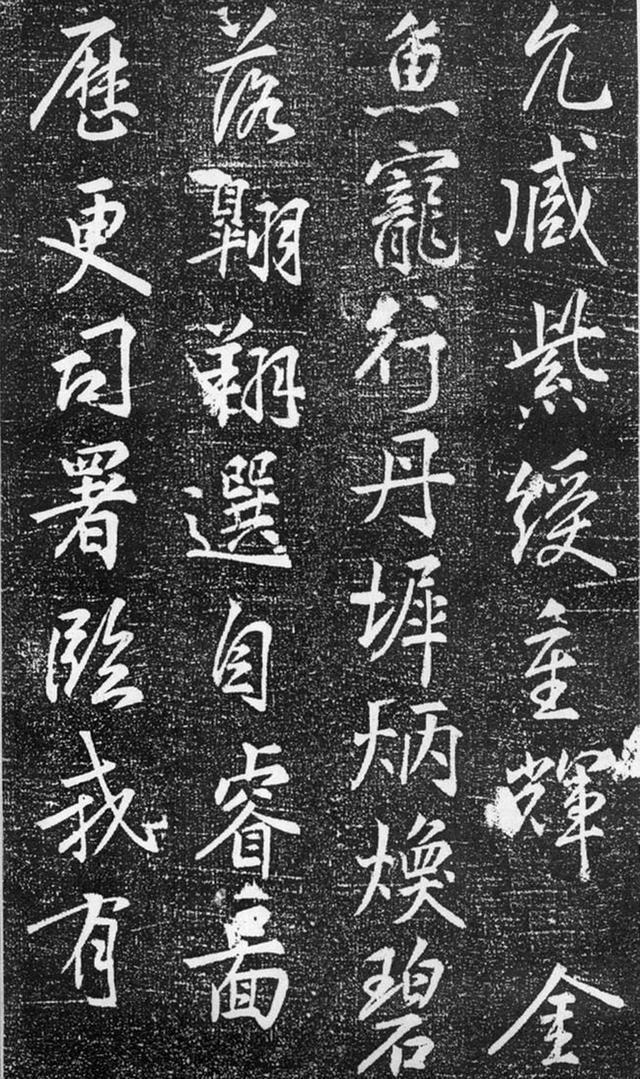 允臧紫綬重輝金
魚寵行丹墀炳煥碧
落翱翔選自睿啚
歷更司署臨我有